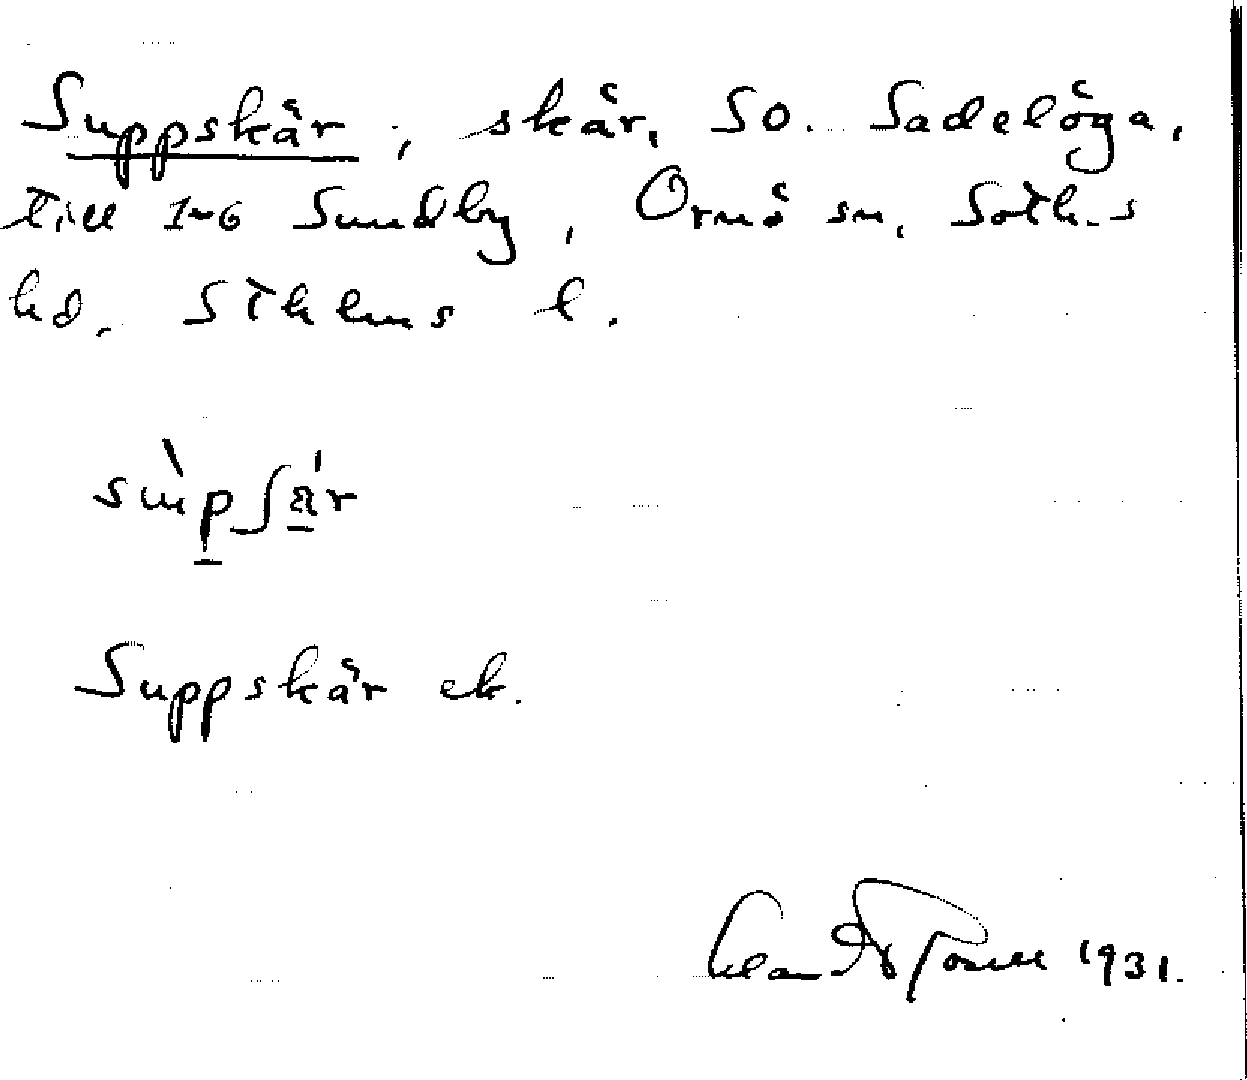 Suppskär, skär, SO. Sadelöga,
till 1-6 Sundby, Ornö sn, Soth.s
hd. Sthlms l.
Suppskär ek.
1931.